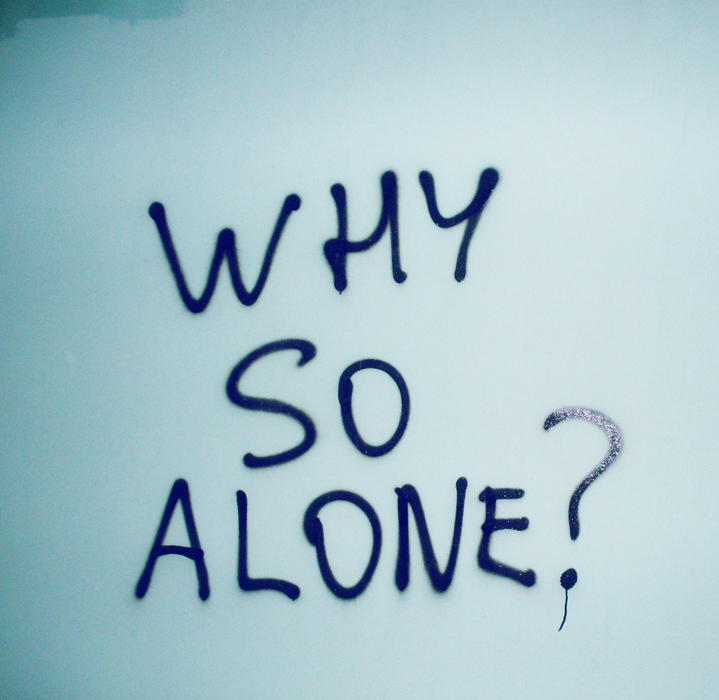 WHY
SO
ALONE?